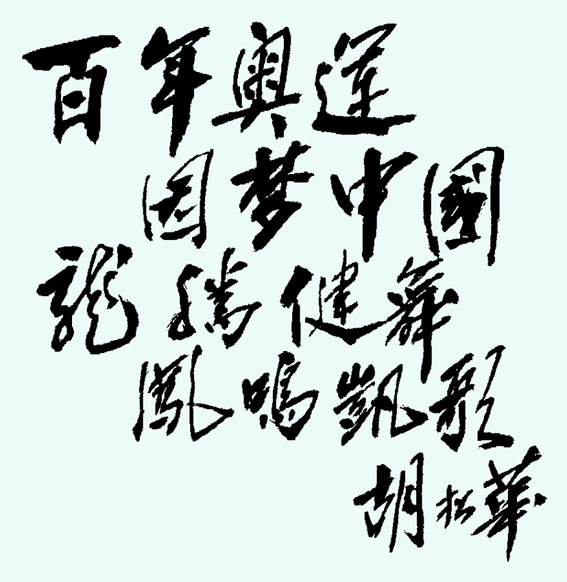 百年奥運
因梦中國
龍騰健舞
鳳鳴凱歌
胡松華